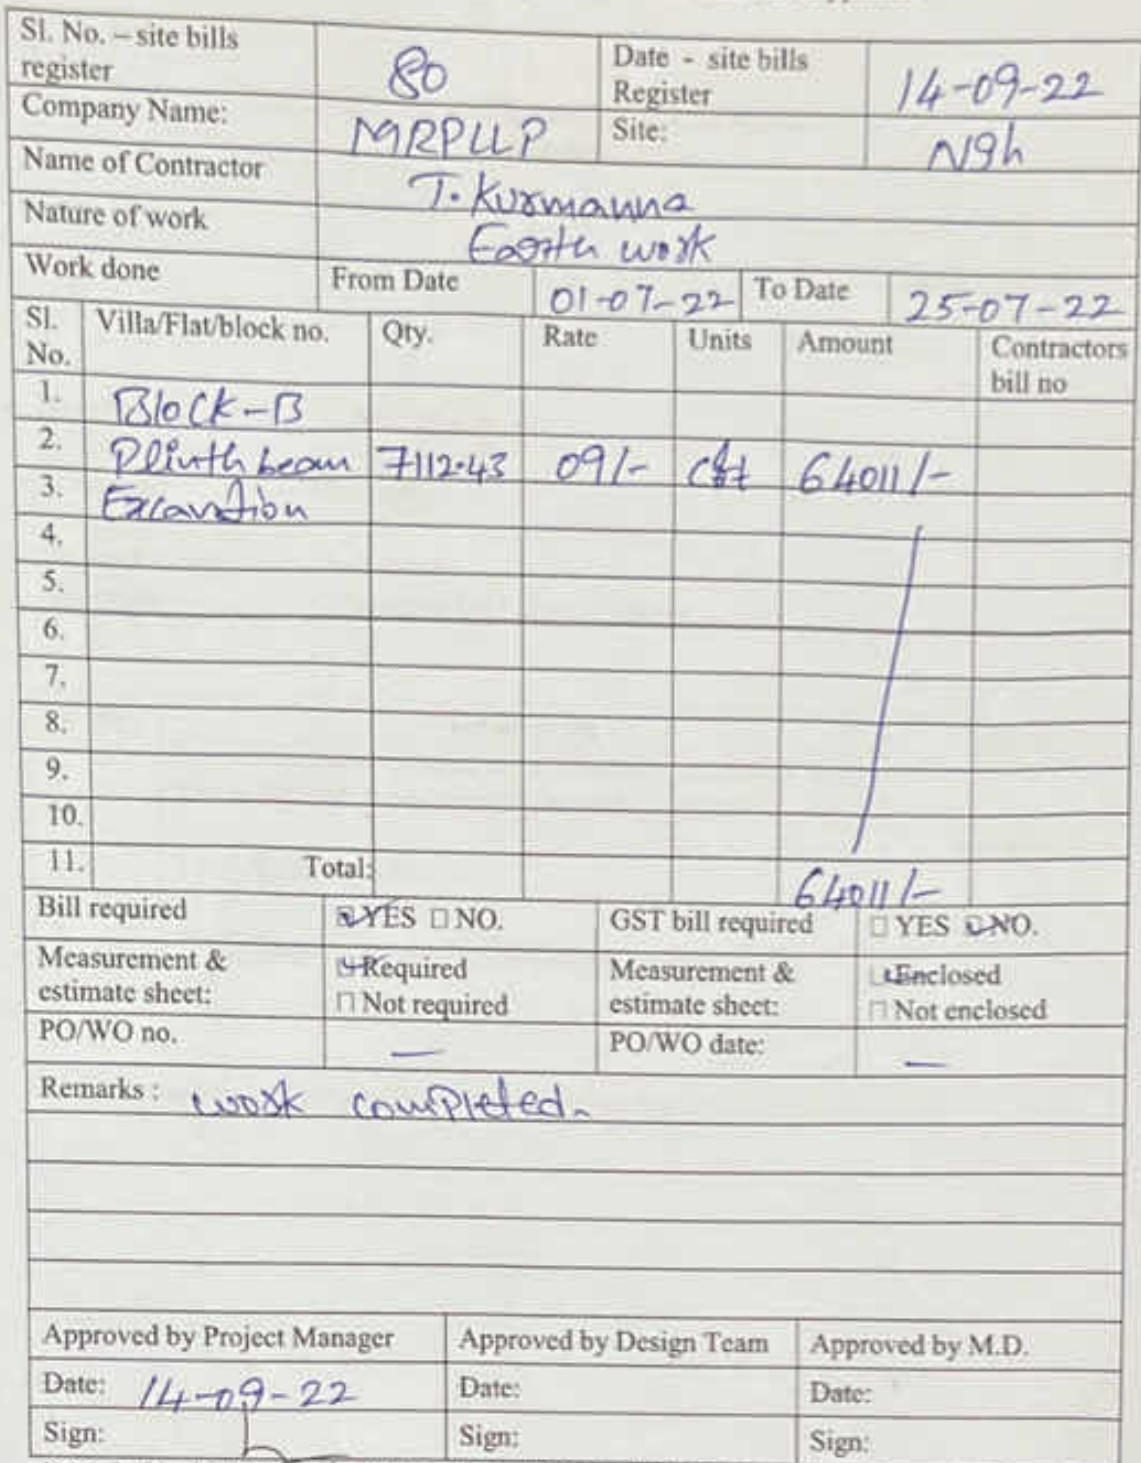 Sl. No. – site bills register 80 Date - site bills Register 14-09-22
Company Name: MRPLLP Site: Ngh
Name of Contractor T. Kurmanna
Nature of work Earth work
Work done From Date 01-07-22 To Date 25-07-22
Sl. No. Villa/Flat/block no. Qty. Rate Units Amount Contractors bill no
1. Block-B
2. Plinth beam 7112.43 09/- cft 64011/-
3. Excavation
4.
5.
6.
7.
8.
9.
10.
11. Total: 64011/-
Bill required ☑ YES ☐ NO. GST bill required ☐ YES ☑ NO.
Measurement & estimate sheet: ☑ Required ☐ Not required Measurement & estimate sheet: ☑ Enclosed ☐ Not enclosed
PO/WO no. — PO/WO date: —
Remarks : work completed.
Approved by Project Manager Approved by Design Team Approved by M.D.
Date: 14-09-22 Date: Date:
Sign: Sign: Sign: